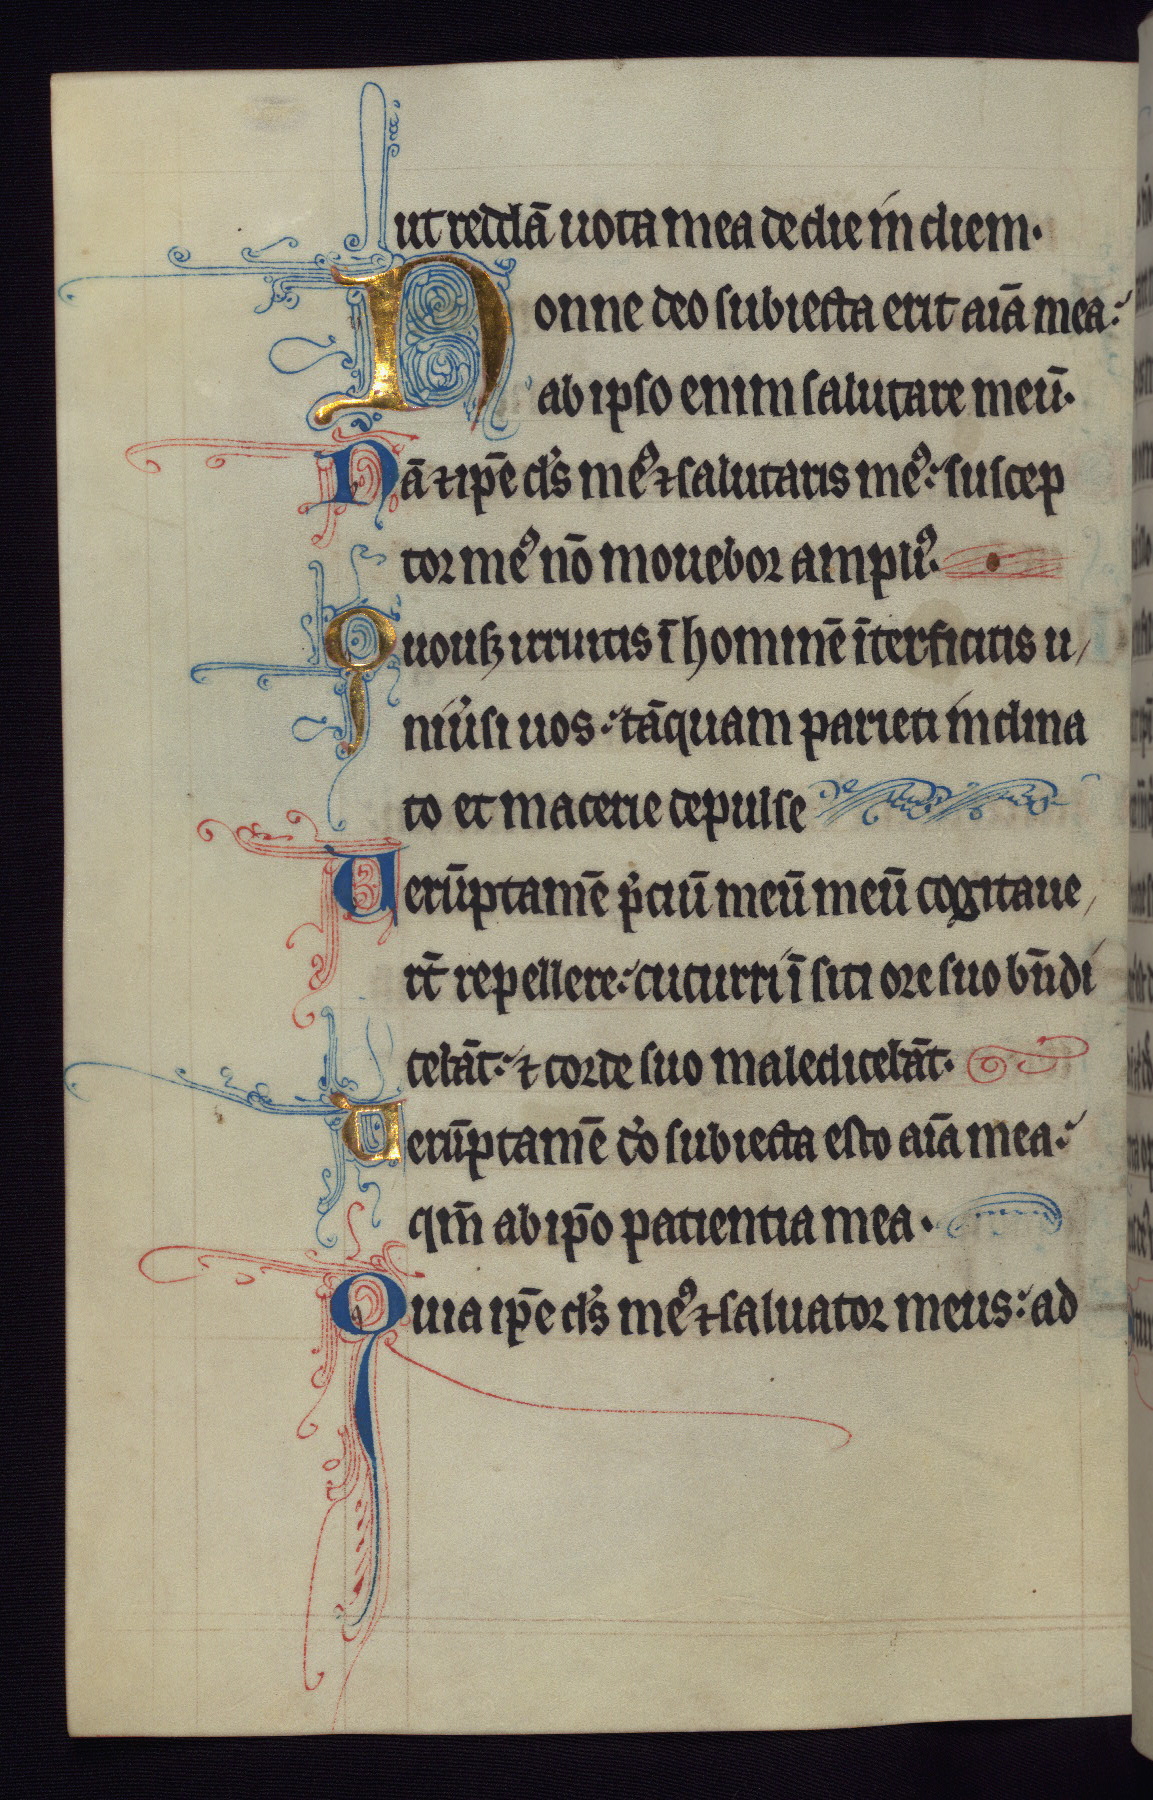 ut reddā uota mea de die in diem·
Nonne deo subiecta erit aīa mea:
ab ipso enim salutare meū·
Nā ⁊ ip̄e ds̄ meꝰ ⁊ salutaris meꝰ: suscep
tor meꝰ nō mouebor ampliꝰ·
Quousqꝫ irruitis ī hominē īterficitis u/
niūsi uos: tāquam parieti inclina
to et macerie depulse
Uerūptamē p̄ciū meū meū cogitaue/
rt̄ repellere: cucurri ī siti ore suo bn̄di
cebāt: ⁊ corde suo maledicebāt·
Uerūptamē do subiecta esto aīa mea:
qm̄ ab ip̄o patientia mea·
Quia ip̄e ds̄ meꝰ ⁊ saluator meus: ad